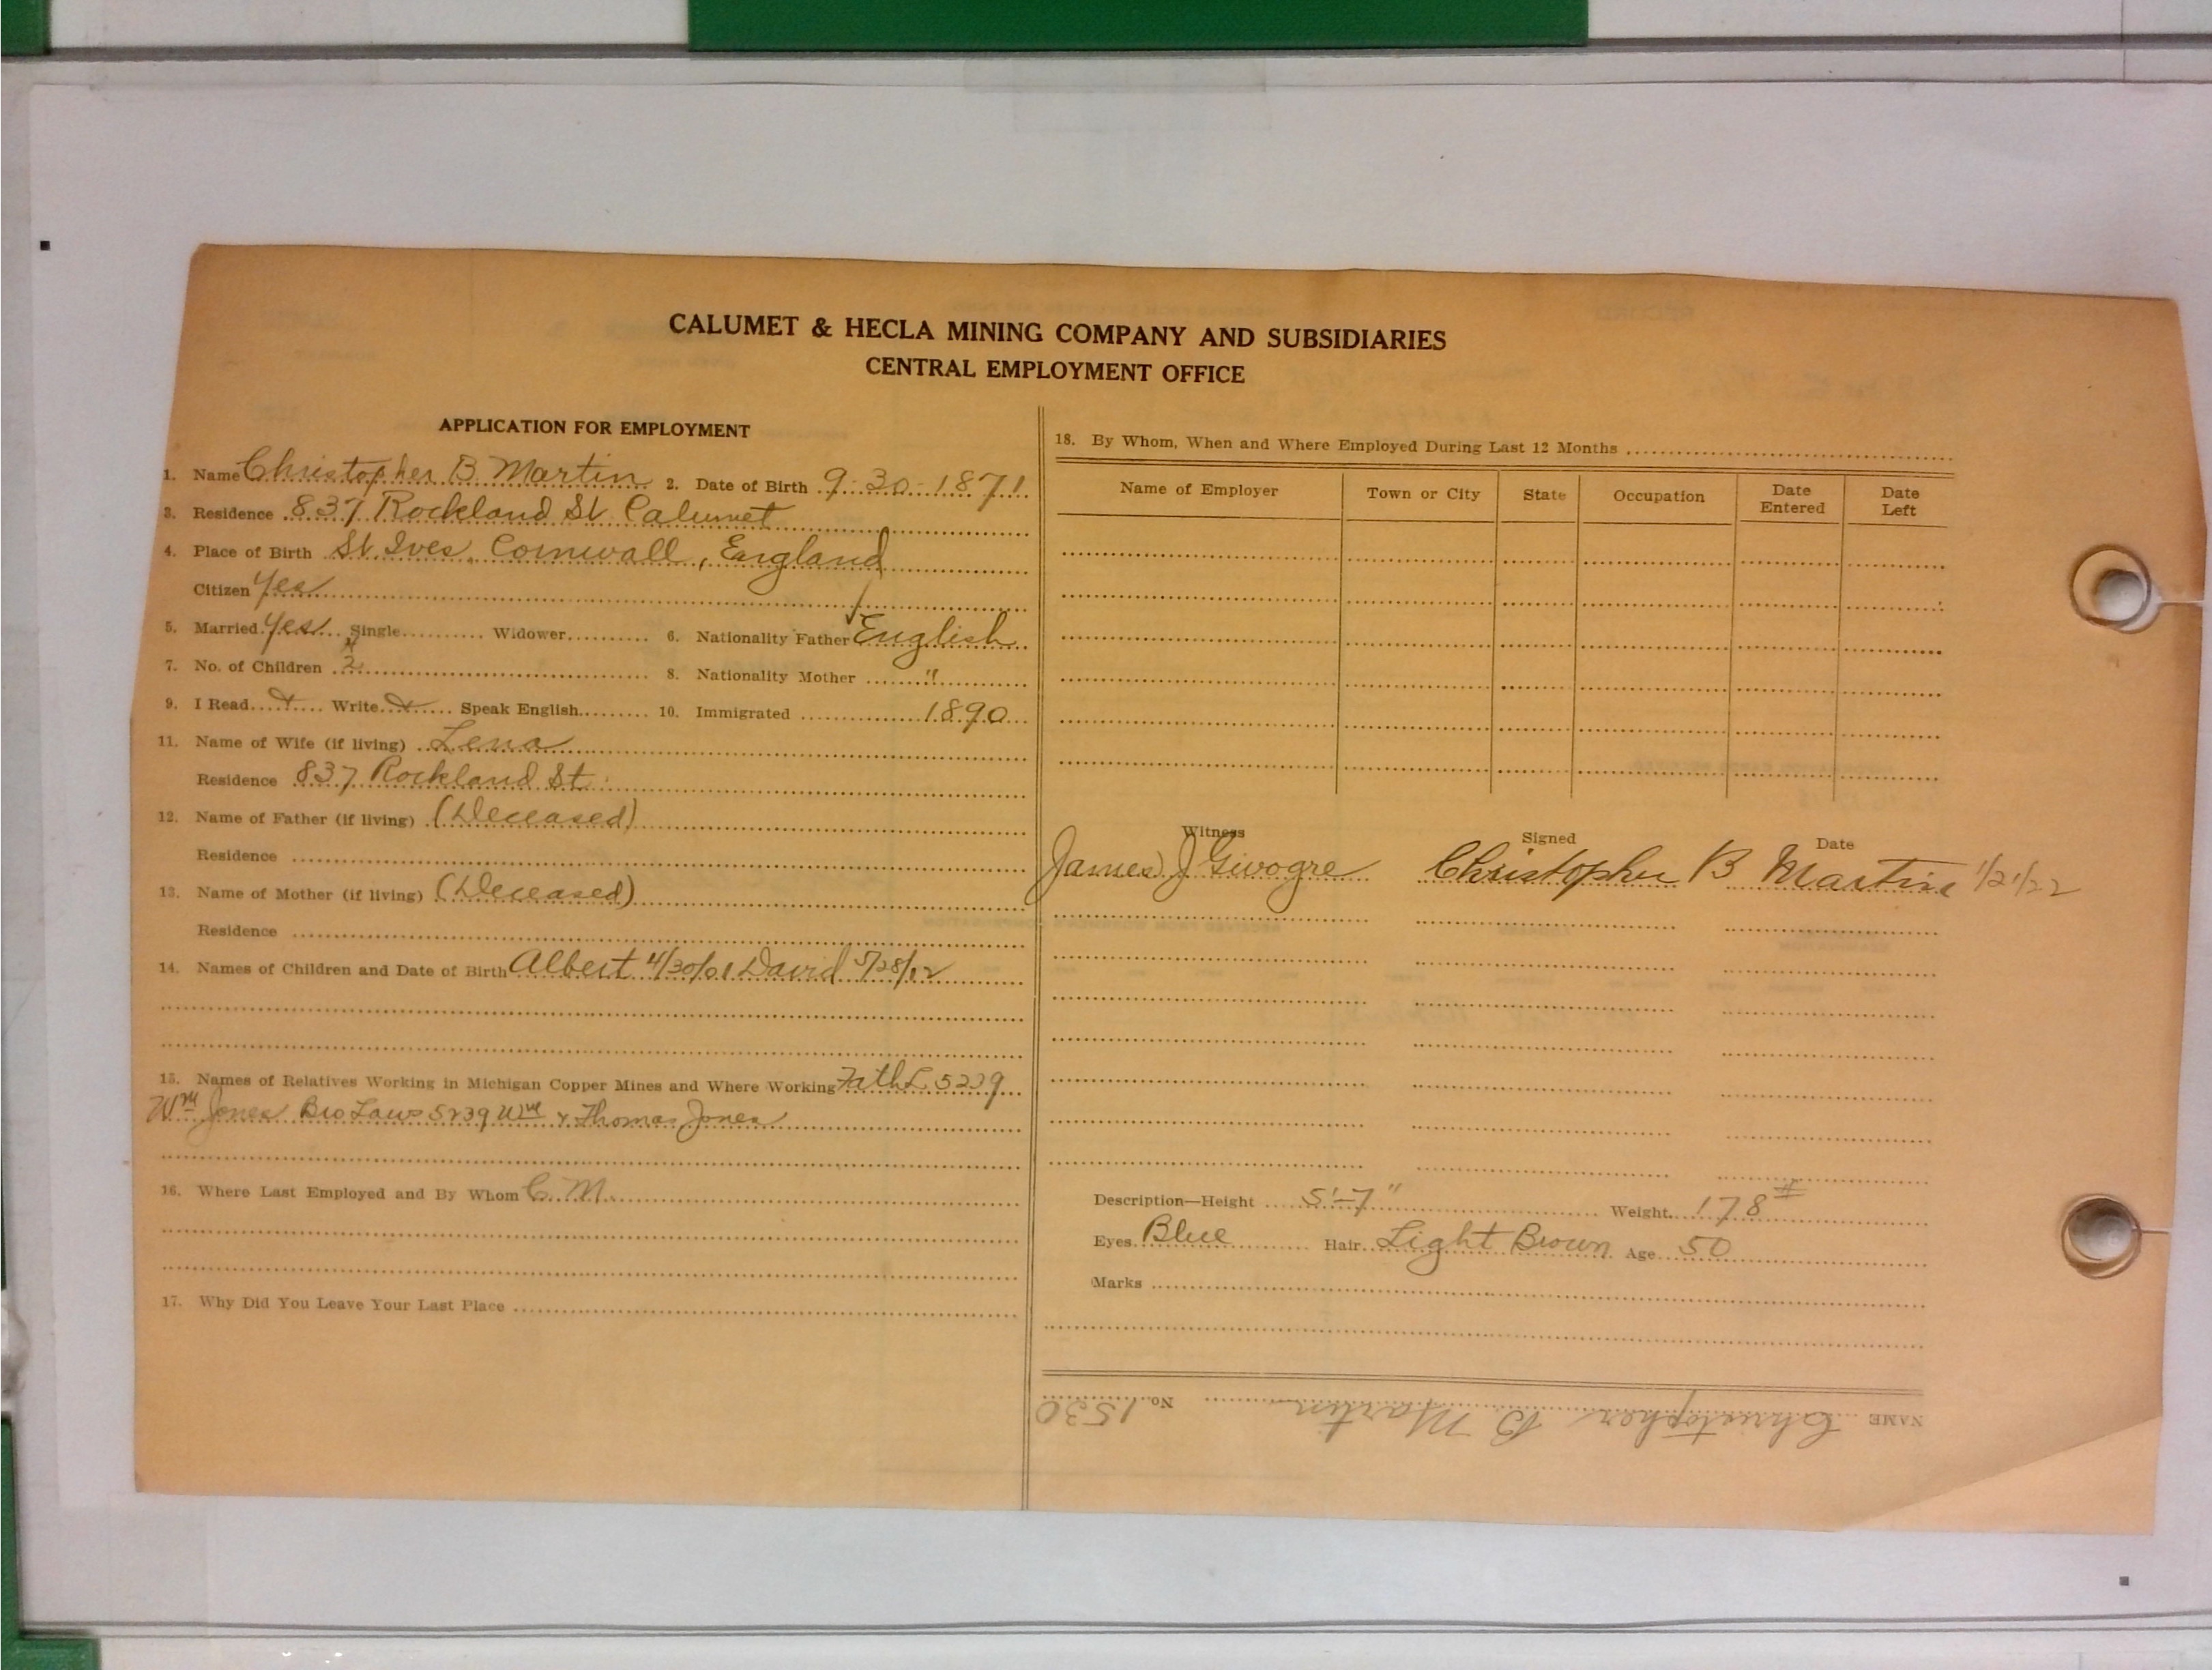 CALUMET & HECLA MINING COMPANY AND SUBSIDIARIES
CENTRAL EMPLOYMENT OFFICE
APPLICATION FOR EMPLOYMENT
1. Name Christopher B Martin 2. Date of Birth 9-30-1871
3. Residence 837 Rockland St Calumet
4. Place of Birth St Ives, Cornwall, England
Citizen Yes
5. Married Yes Single Widower 6. Nationality Father English
7. No. of Children 2 8. Nationality Mother "
9. I Read Write Speak English 10. Immigrated 1890
11. Name of Wife (if living) Lena
Residence 837 Rockland St.
12. Name of Father (if living) (Deceased)
Residence
13. Name of Mother (if living) (Deceased)
Residence
14. Names of Children and Date of Birth Albert 4/30/01 David 5/28/12
15. Names of Relatives Working in Michigan Copper Mines and Where Working FathL 5239
Wm Jones Bro Laws 5239 Wm & Thomas Jones
16. Where Last Employed and By Whom C. M.
17. Why Did You Leave Your Last Place
18. By Whom, When and Where Employed During Last 12 Months
Name of Employer Town or City State Occupation Date Entered Date Left
Witness Signed Date
James J Givogre Christopher B Martin 1/21/22
Description—Height 5'-7" Weight 178#
Eyes Blue Hair Light Brown Age 50
Marks
NAME Christopher B Martin No. 1530